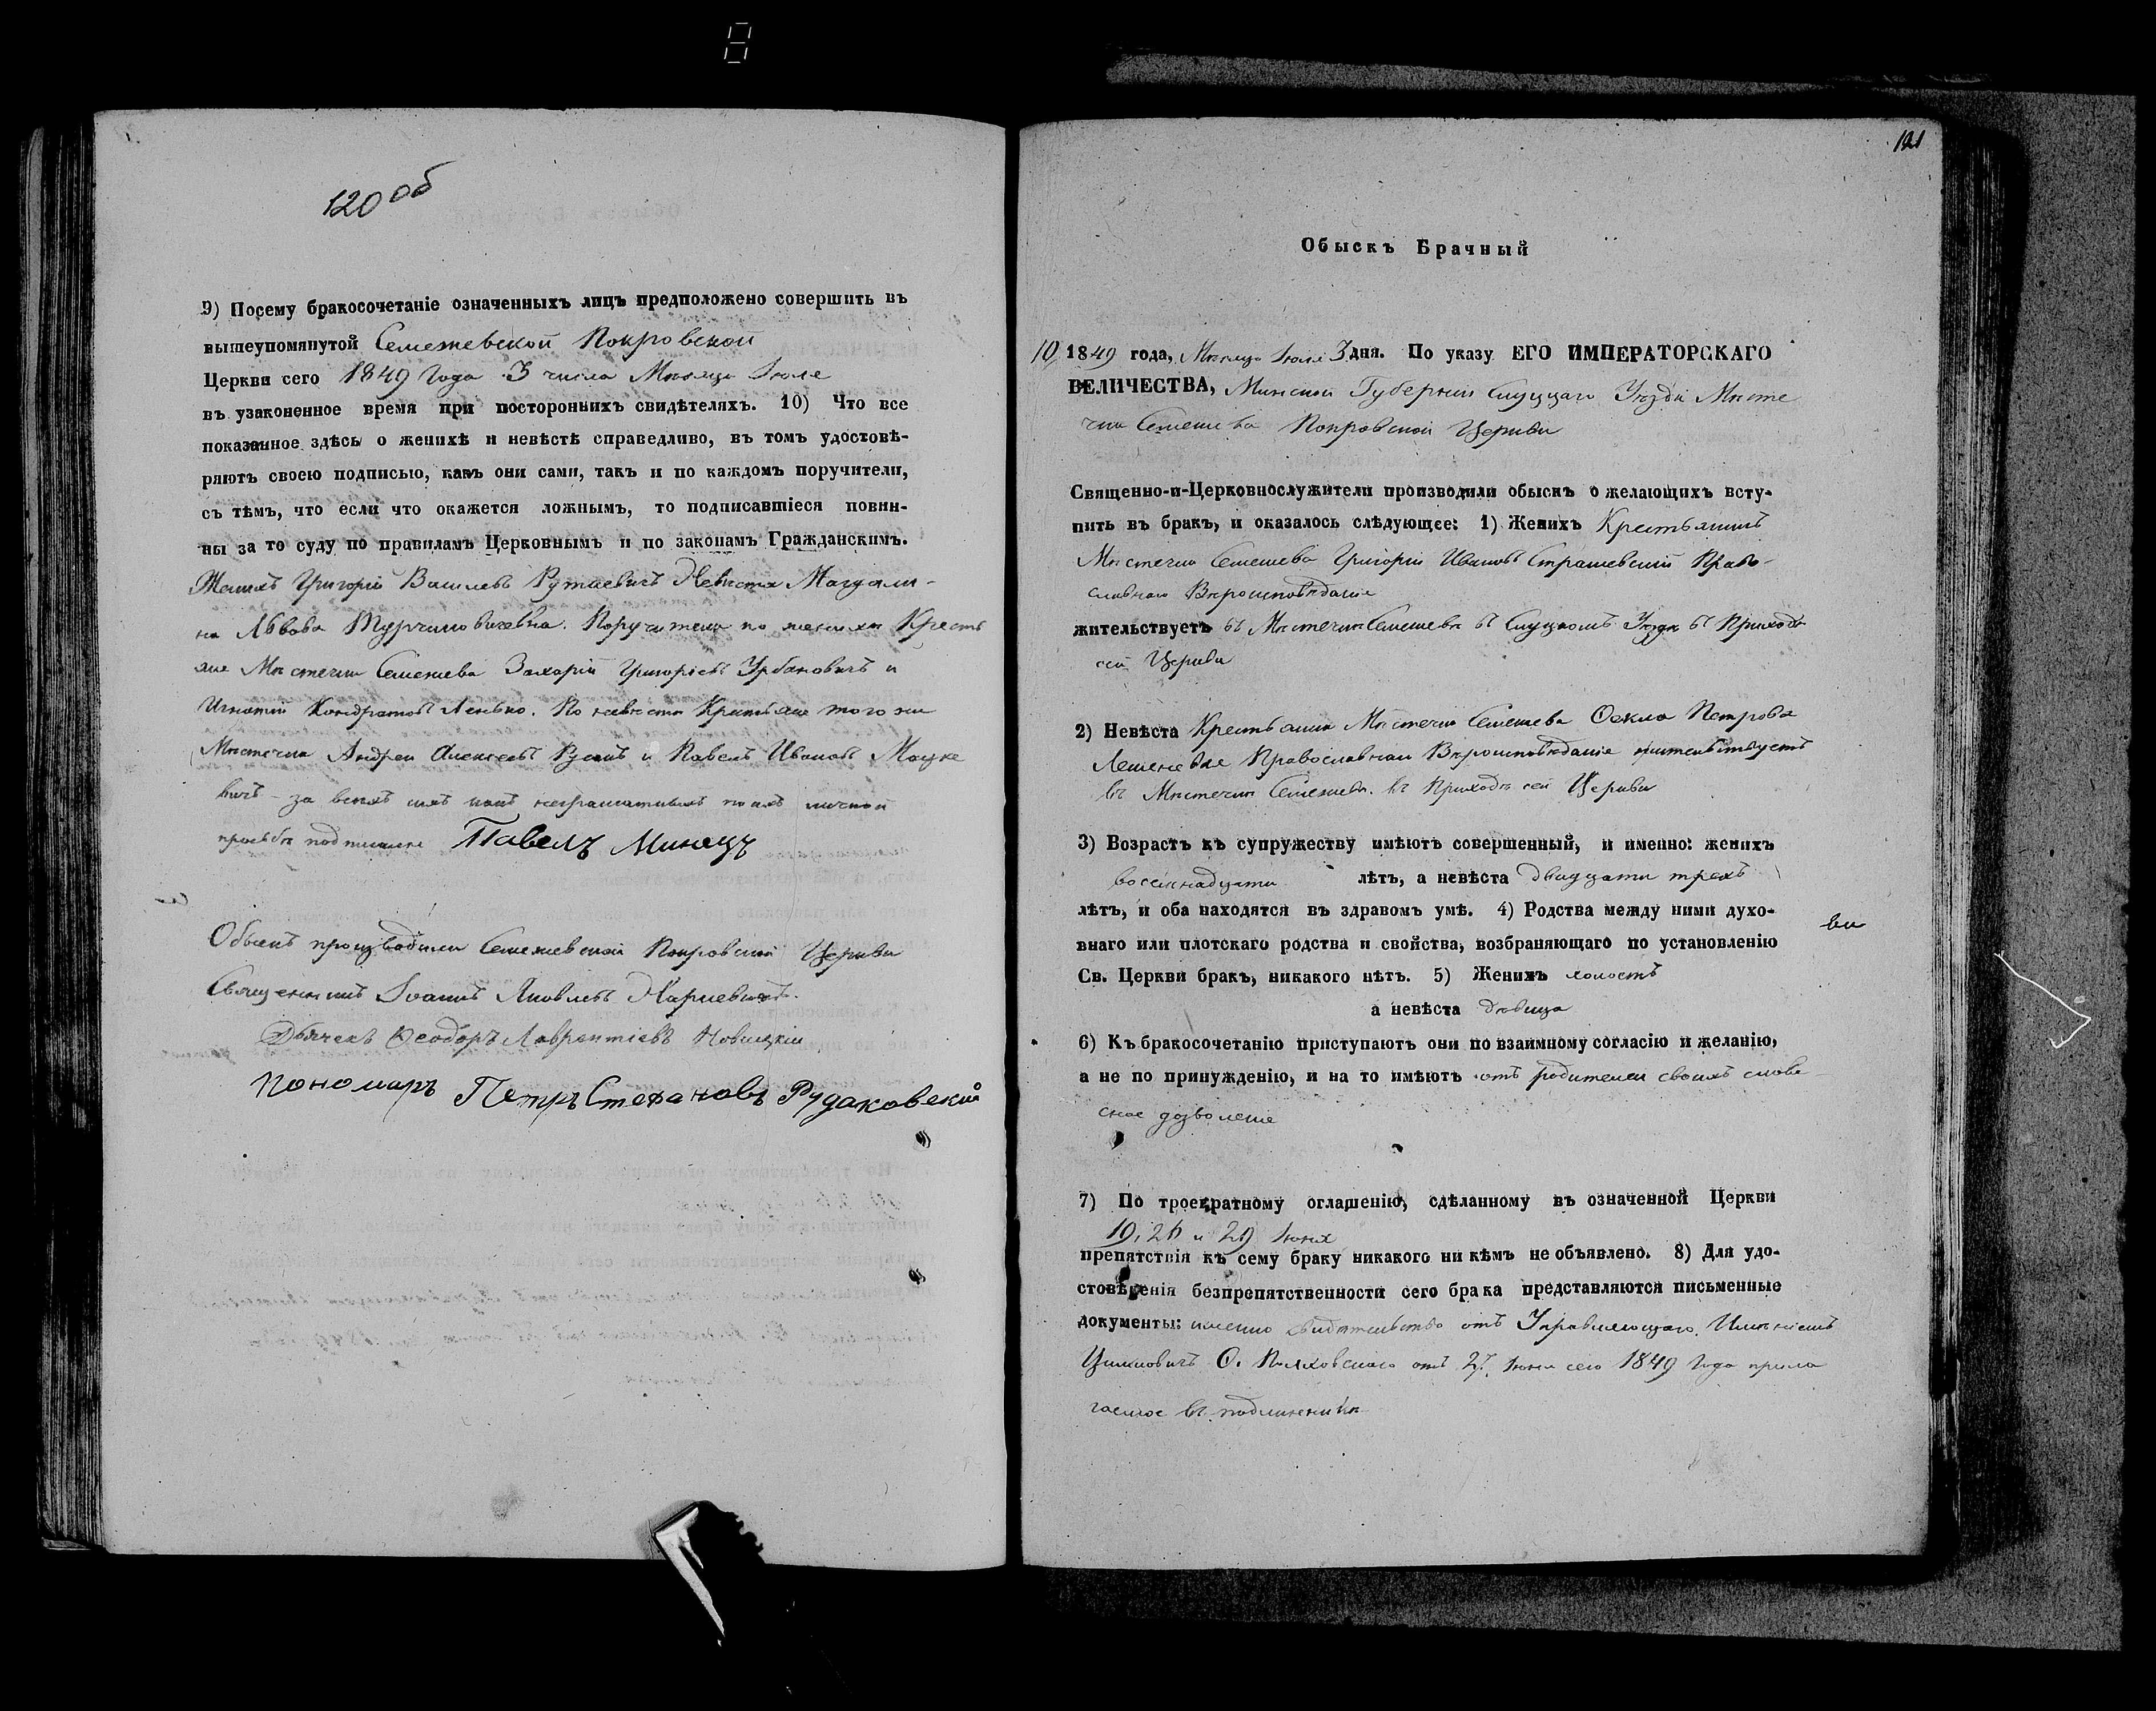 120 об
9) Посему бракосочетаніе означенныхъ лицъ предположено совершить въ
вышеупомянутой Семежевской Покровской
Церкви сего 1849 года 3 числа Мѣсяца Іюля
въ узаконенное время при постороннихъ свидѣтеляхъ. 10) Что все
показанное здѣсь о женихѣ и невѣстѣ справедливо, въ томъ удостовѣ-
ряютъ своею подписью, какъ они сами, такъ и по каждомъ поручители,
съ тѣмъ, что если что окажется ложнымъ, то подписавшіеся повин-
ны за то суду по правиламъ Церковнымъ и по законамъ Гражданскимъ.
Женихъ Григорій Василевъ Невѣста Магдали-
на Львова Турчиновичевна. Поручители по женихѣ Кресть
яне Мѣстечка Семежева Захарій Григоріевъ Урбановичъ и
Игнатій Кондратовъ Ленько. По невѣсти Крестьяне того же
Мѣстечка Андрей Алексѣевъ Русакъ и Павелъ Ивановъ Мацке
вичъ - за всѣхъ ихъ неграматныхъ по ихъ личной
прозьбѣ подписался Павелъ Минецъ
Обыскъ производили Семежевской Покровской Церкви
Священникъ Іоаннъ Яковлевъ
Дьячекъ Ѳеодоръ Лаврентіевъ Новицкій
Пономаръ Петръ Стефановъ Рудаковскій
121
Обыскъ Брачный
10 1849 года, Мѣсяца Іюля 3 дня. По указу ЕГО ИМПЕРАТОРСКАГО
ВЕЛИЧЕСТВА, Минской Губерніи Слуцкаго Уѣзда Мѣсте
чка Семежева Покровской Церкви
Священно-и-Церковнослужители производили обыскъ о желающихъ всту-
пить въ бракъ, и оказалось слѣдующее: 1) Женихъ Крестьянинъ
Мѣстечка Семежева Григорій Ивановъ Страшевскій Право-
славнаго Вѣроисповѣданія
жительствуетъ въ Мѣстечкѣ Семежевѣ въ Слуцкомъ Уѣздѣ въ Приходѣ
сей Церкви
2) Невѣста Крестьянка Мѣстечка Семежева Ѳекла Петрова
Православнаго Вѣроисповѣданія жительствуетъ
въ Мѣстечкѣ Семежевѣ въ Приходѣ сей Церкви
3) Возрастъ къ супружеству имѣютъ совершенный, и именно: женихъ
восемнадцати лѣтъ, а невѣста двадцати трехъ
лѣтъ, и оба находятся въ здравомъ умѣ. 4) Родства между ними духо-
внаго или плотскаго родства и свойства, возбраняющаго по установленію
Св. Церкви бракъ, никакого нѣтъ. 5) Женихъ холостъ
а невѣста дѣвица
6) Къ бракосочетанію приступаютъ они по взаимному согласію и желанію,
а не по принужденію, и на то имѣютъ отъ родителей своихъ слове
сное дозволеніе
7) По троекратному оглашенію, сдѣланному въ означенной Церкви
19, 26 и 29 Іюня
препятствія къ сему браку никакого ни кѣмъ не объявлено. 8) Для удо-
стовѣренія безпрепятственности сего брака представляются письменные
документы: именно свидѣтельство отъ Управляющаго Имѣніемъ
отъ 27 Іюня сего 1849 года прила
гаемое въ подлинникѣ